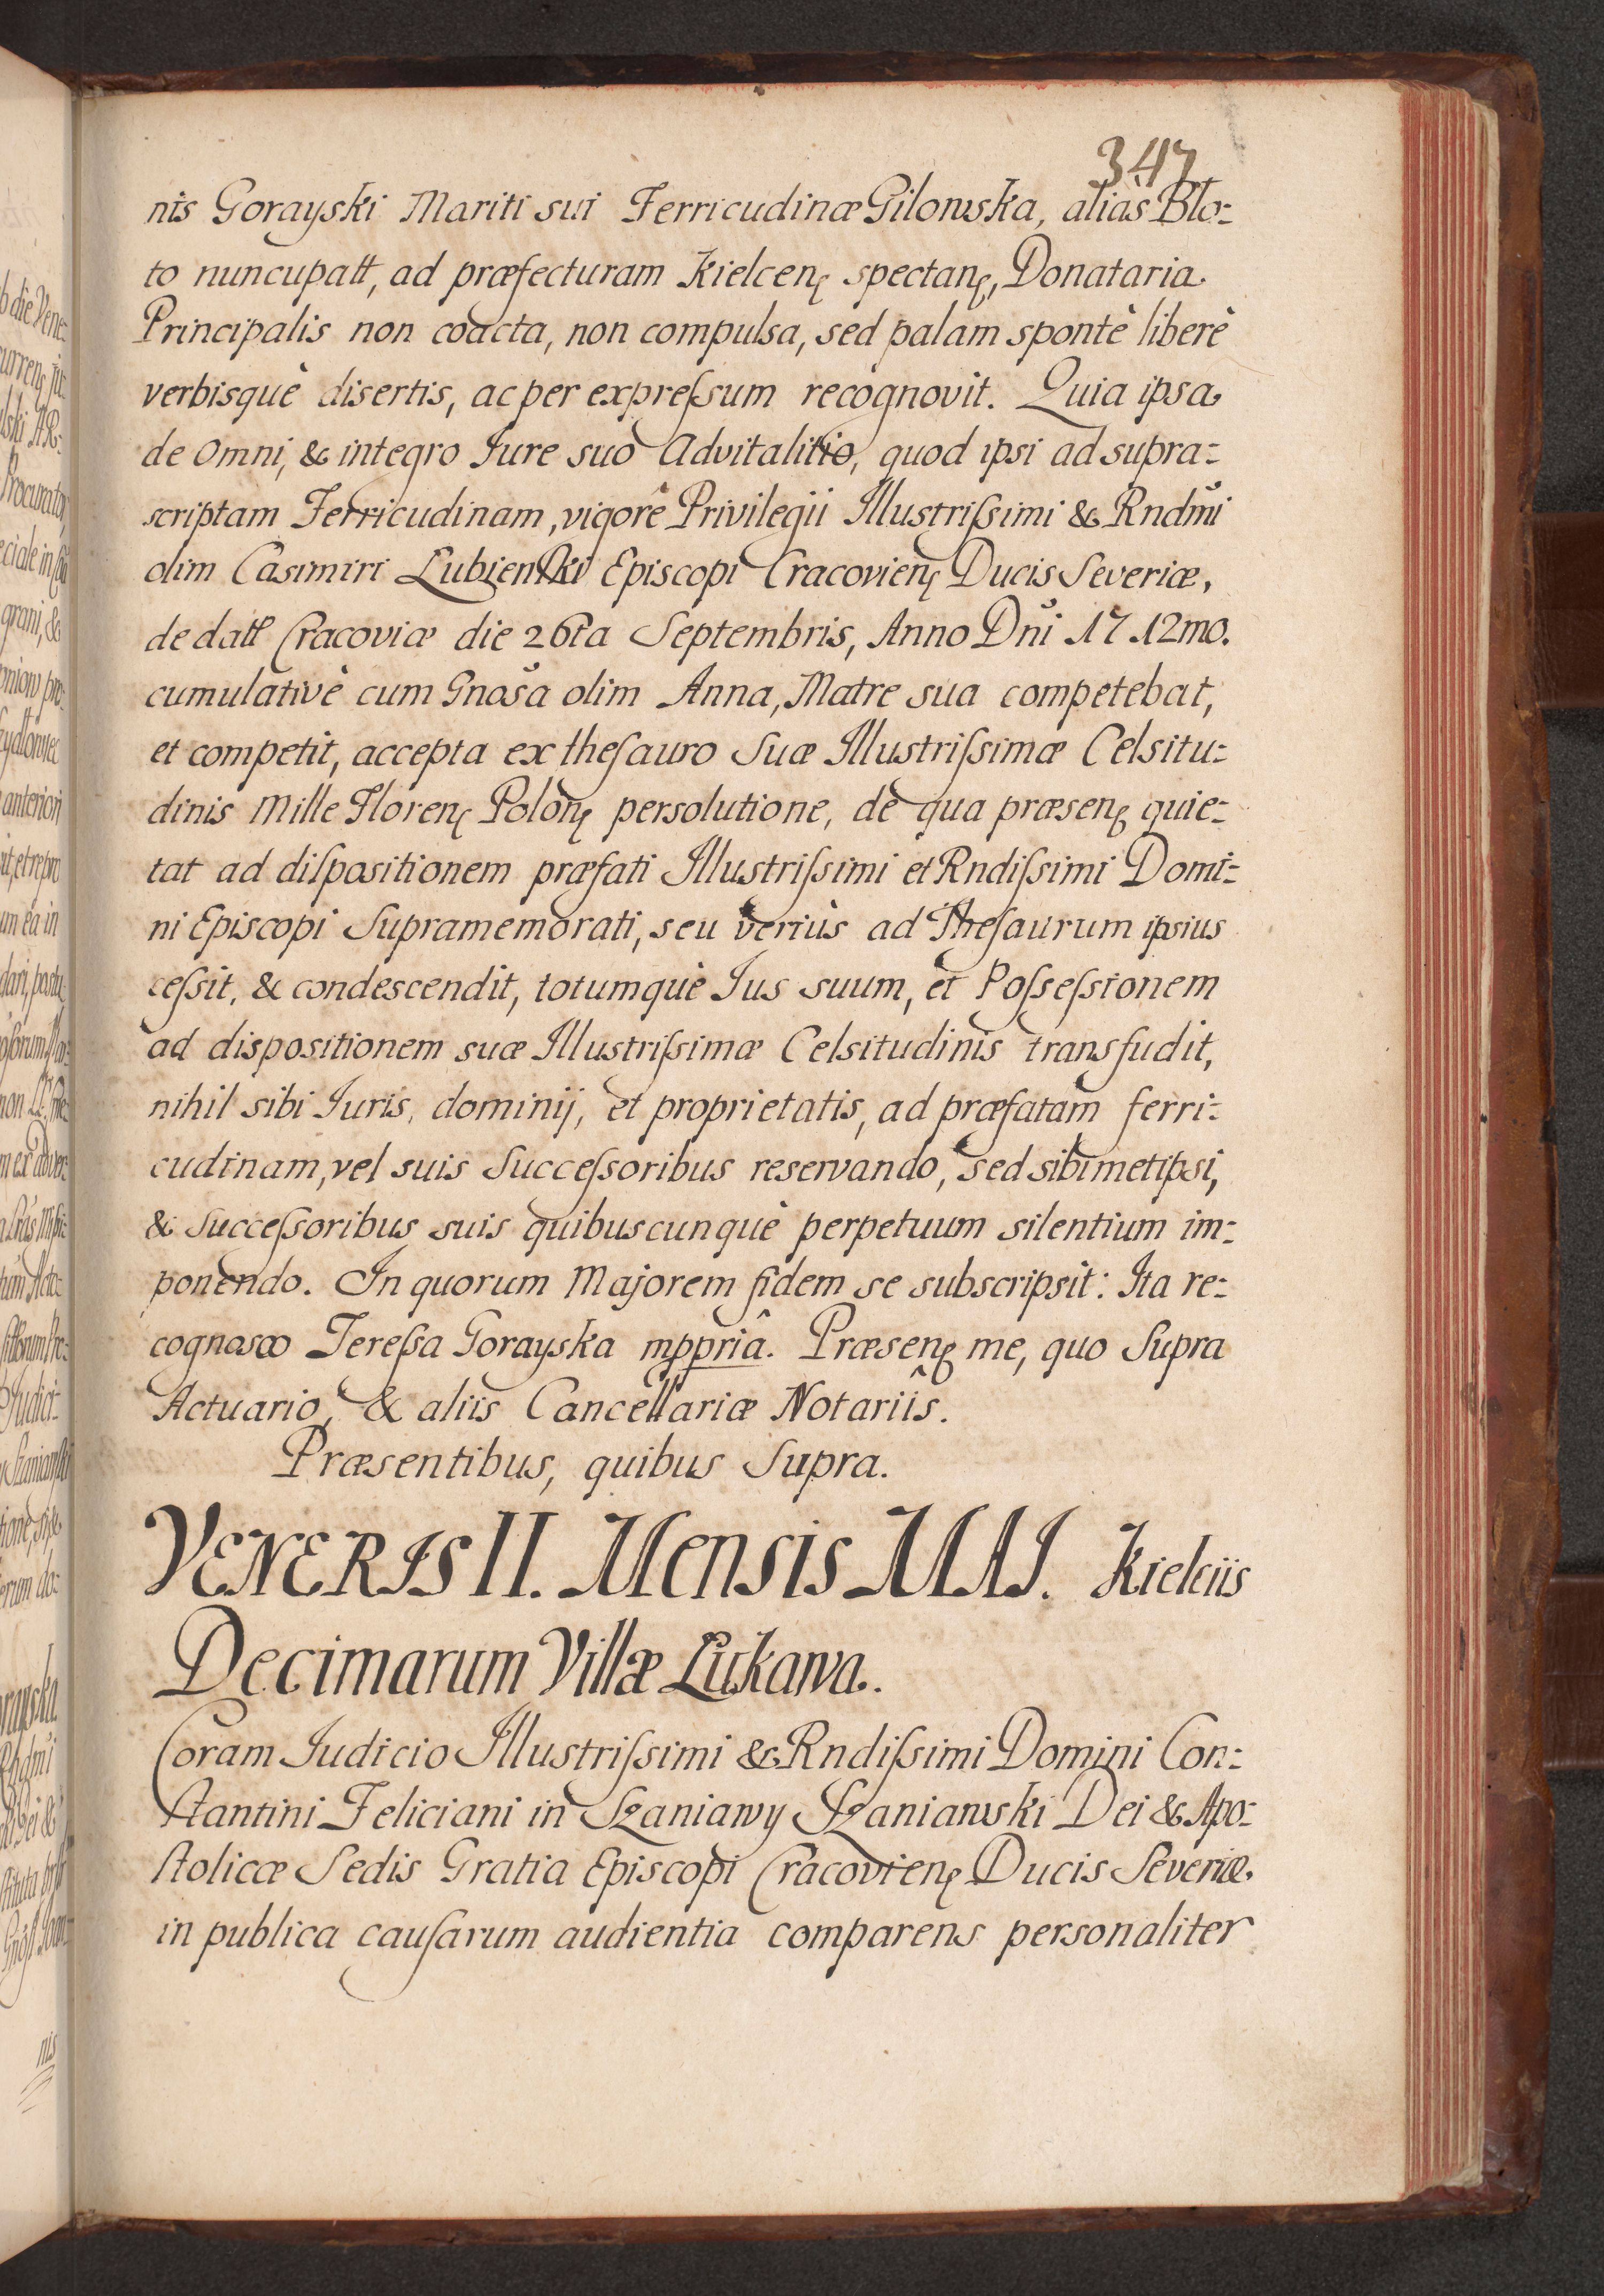 347
nis Gorayski Mariti sui Ferricudinæ Gilowska, aliàs Blo-
to nuncupatt, ad præfecturam Kielcenę spectanę, Donataria
Principalis non coacta, non compulsa, sed palam spontè liberè
verbisquè disertis, ac per expreſsum recognovit. Quia ipsa
de Omni, & integro Jure suo Advitalitio, quod ipsi ad supra-
scriptam Ferricudinam, vigore Privilegii Illustriſsimi & Rndm̃i
olim Casimiri Lubienſki Episcopi Cracovienę Ducis Severiæ,
de datt Cracoviæ die 26ta Septembris, Anno Dn̄i 1712mo.
cumulativè cum Gnos̄a olim Anna, Matre sua competebat,
et competit, accepta ex theſauro Suæ Illustriſsimæ Celsitu-
dinis Mille Florenę Polonę persolutione, de qua præsenę quie-
tat ad diſpositionem præfati Illustriſsimi et Rndiſsimi Domi-
ni Episcopi Supramemorati, seu veriùs ad Theſaurum ipsius
ceſsit, & condescendit, totumquè Jus suum, et Poſseſsionem
ad dispositionem suæ Illustriſsimæ Celsitudinis transfudit,
nihil sibi Juris, dominij, et proprietatis, ad præfatam ferri-
cudinam, vel suis Succeſsoribus reservando, sed sibimetipsi,
& Succeſsoribus suis quibuscunquè perpetuum silentium im-
ponendo. In quorum Majorem fidem se subscripsit: Ita re-
cognosco Tereſsa Gorayska mppriâ. Præsenę me, quo Supra
Actuario, & aliis Cancellariæ Notariîs.
Præsentibus, quibus Supra.
VENERIS II. Mensis MAI. Kielciis
Decimarum Villæ Łukawa.
Coram Judicio Illustriſsimi & Rndiſsimi Domini Con-
ſtantini Feliciani in Szaniawy Szaniawski Dei & Apo-
ſtolicæ Sedis Gratia Episcopi Cracovienę Ducis Severiæ
in publica cauſarum audientia comparens personaliter
nis